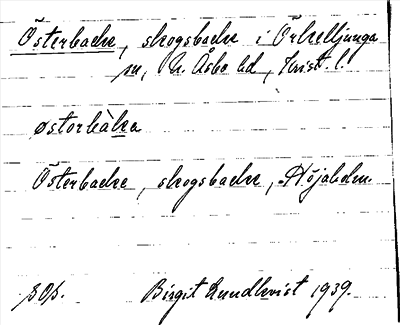 Österbacke, skogsbacke i Örkelljunga
sn, N. Åsbo hd, Krist. l.
østorbàka
Österbacke, skogsbacke, Höjalden.
sop. Birgit Lundkvist 1939.